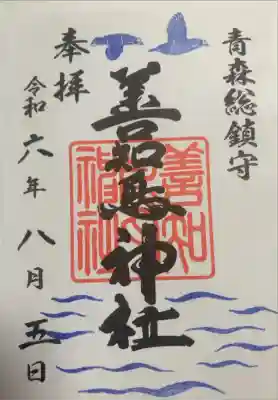 青森総鎮守
奉拝
善知鳥神社
令和六年八月五日